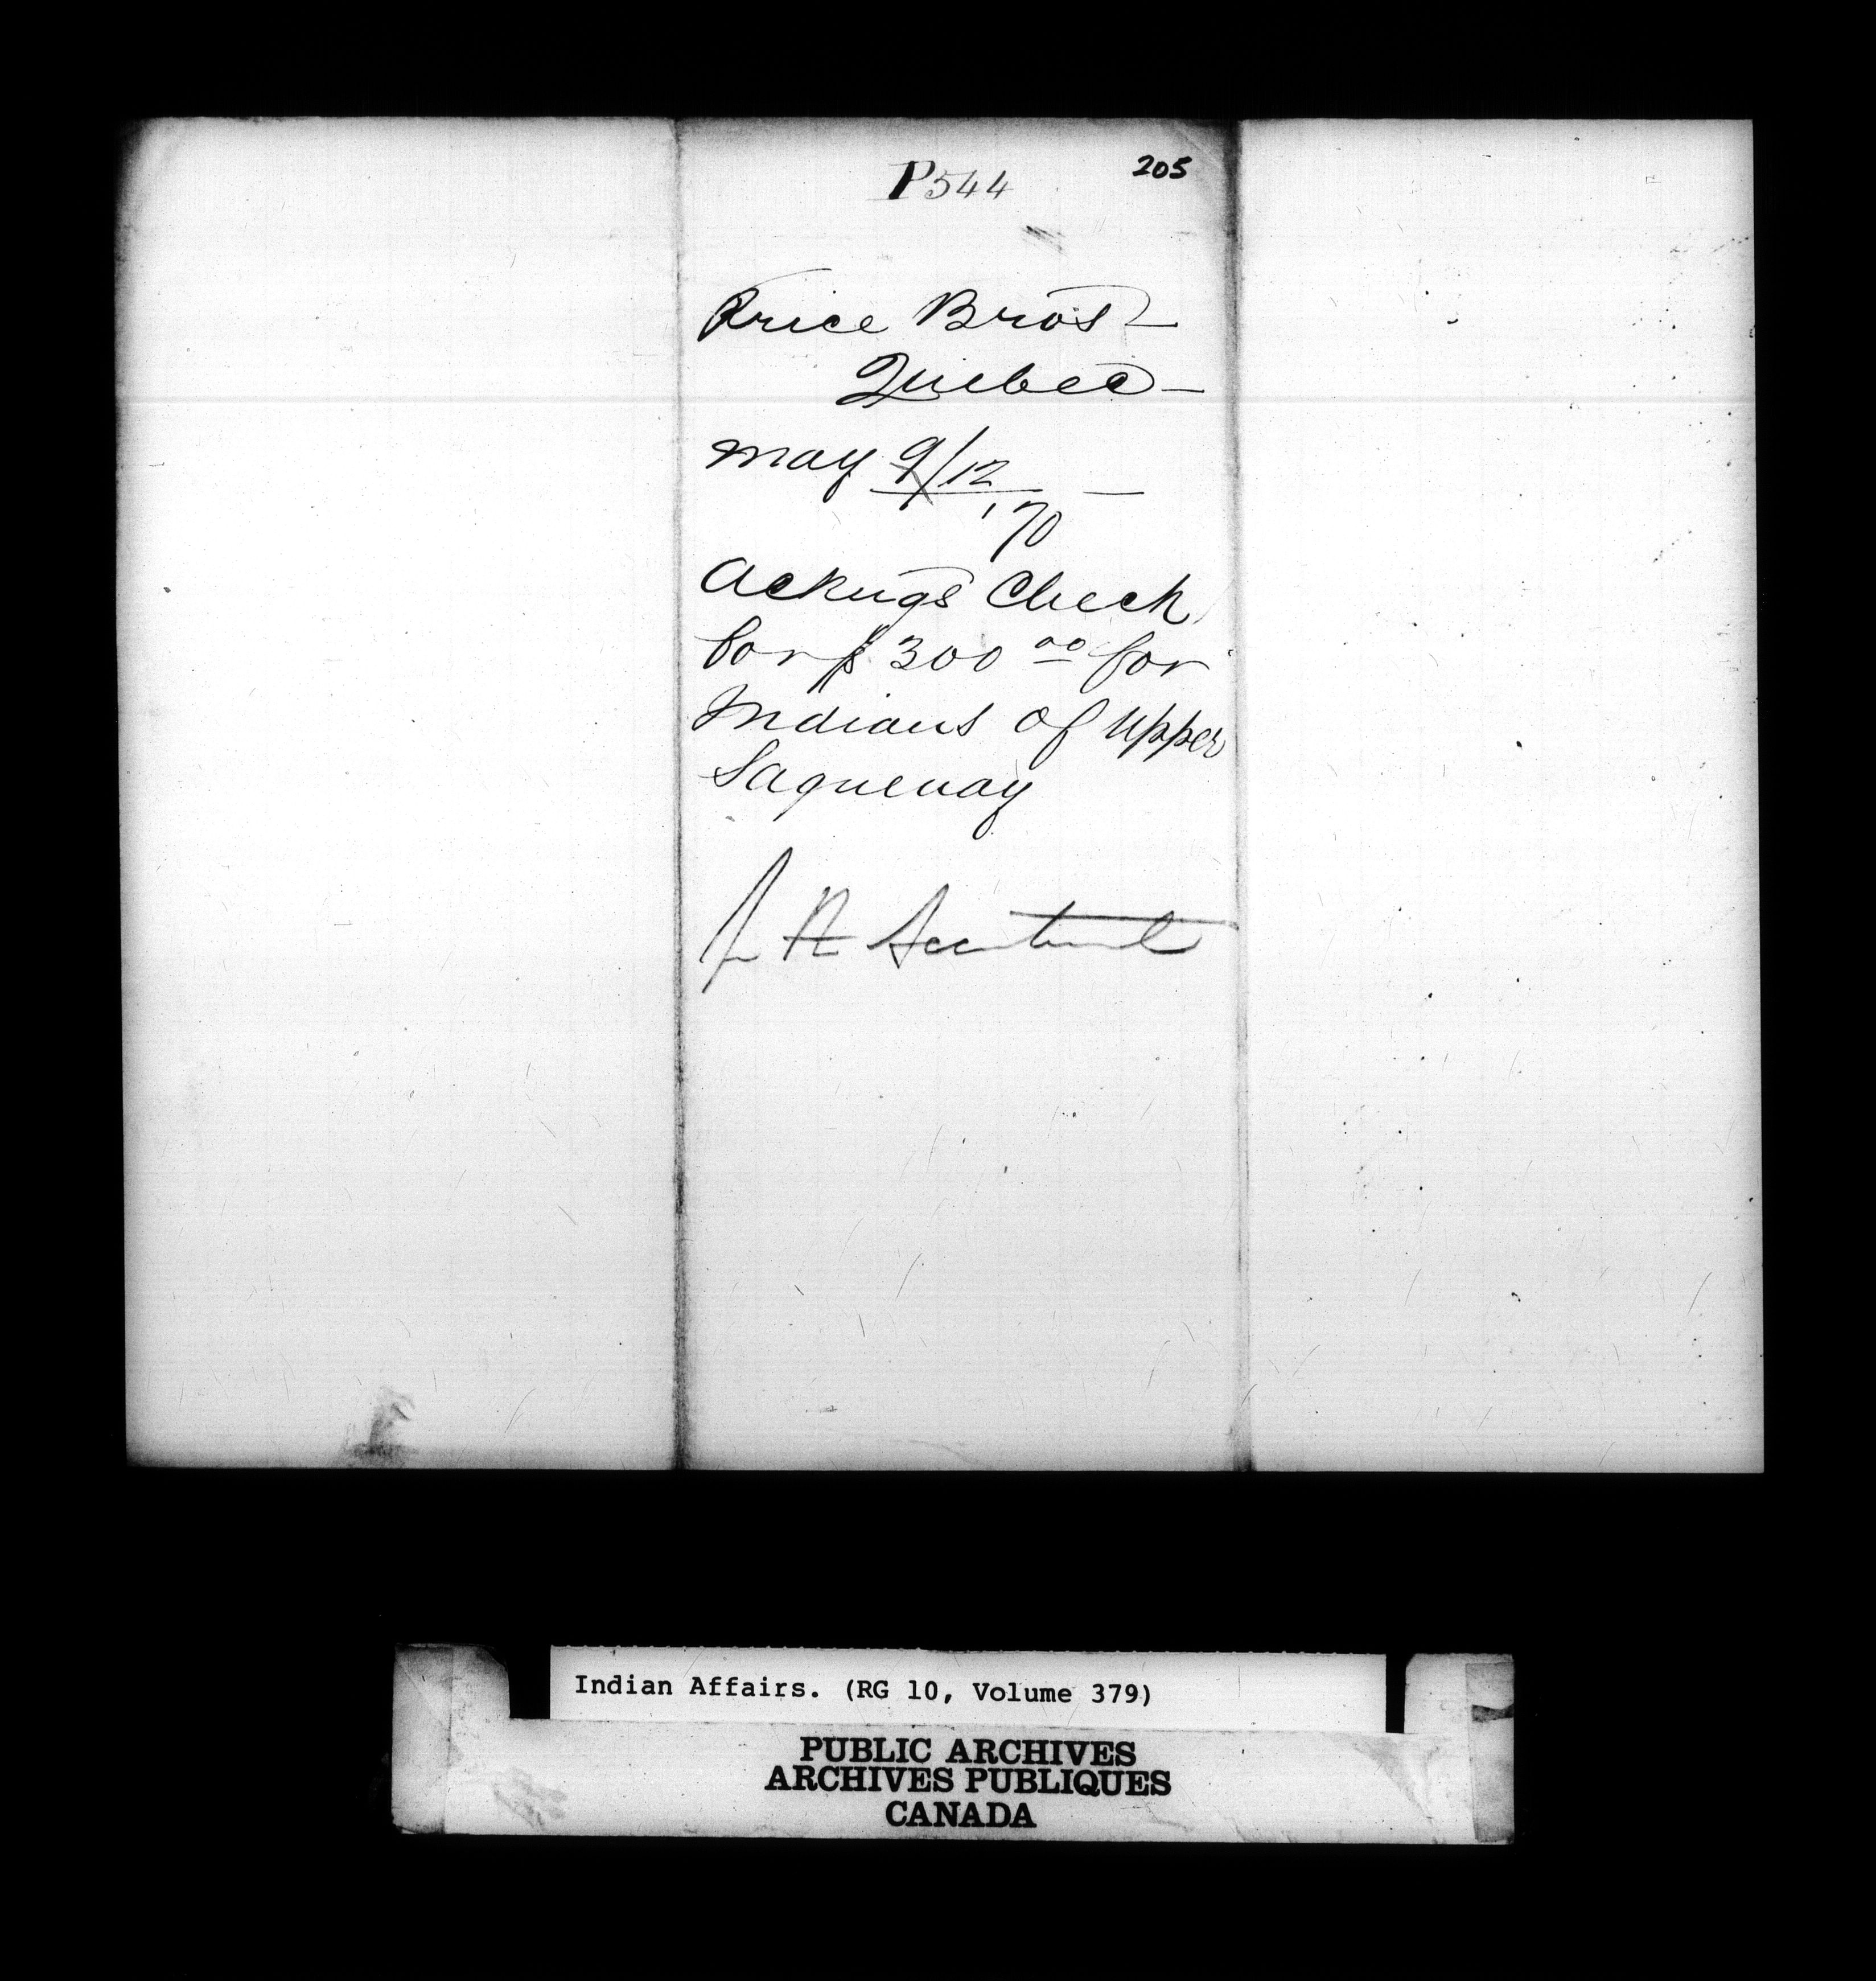 205
P544
Price Bros –
Quebec –
May 9/12 –
'70
Ackngs Check
for $300 00 for
Indians of Upper
Saguenay
Indian Affairs. (RG 10, Volume 379)
PUBLIC ARCHIVES
ARCHIVES PUBLIQUES
CANADA